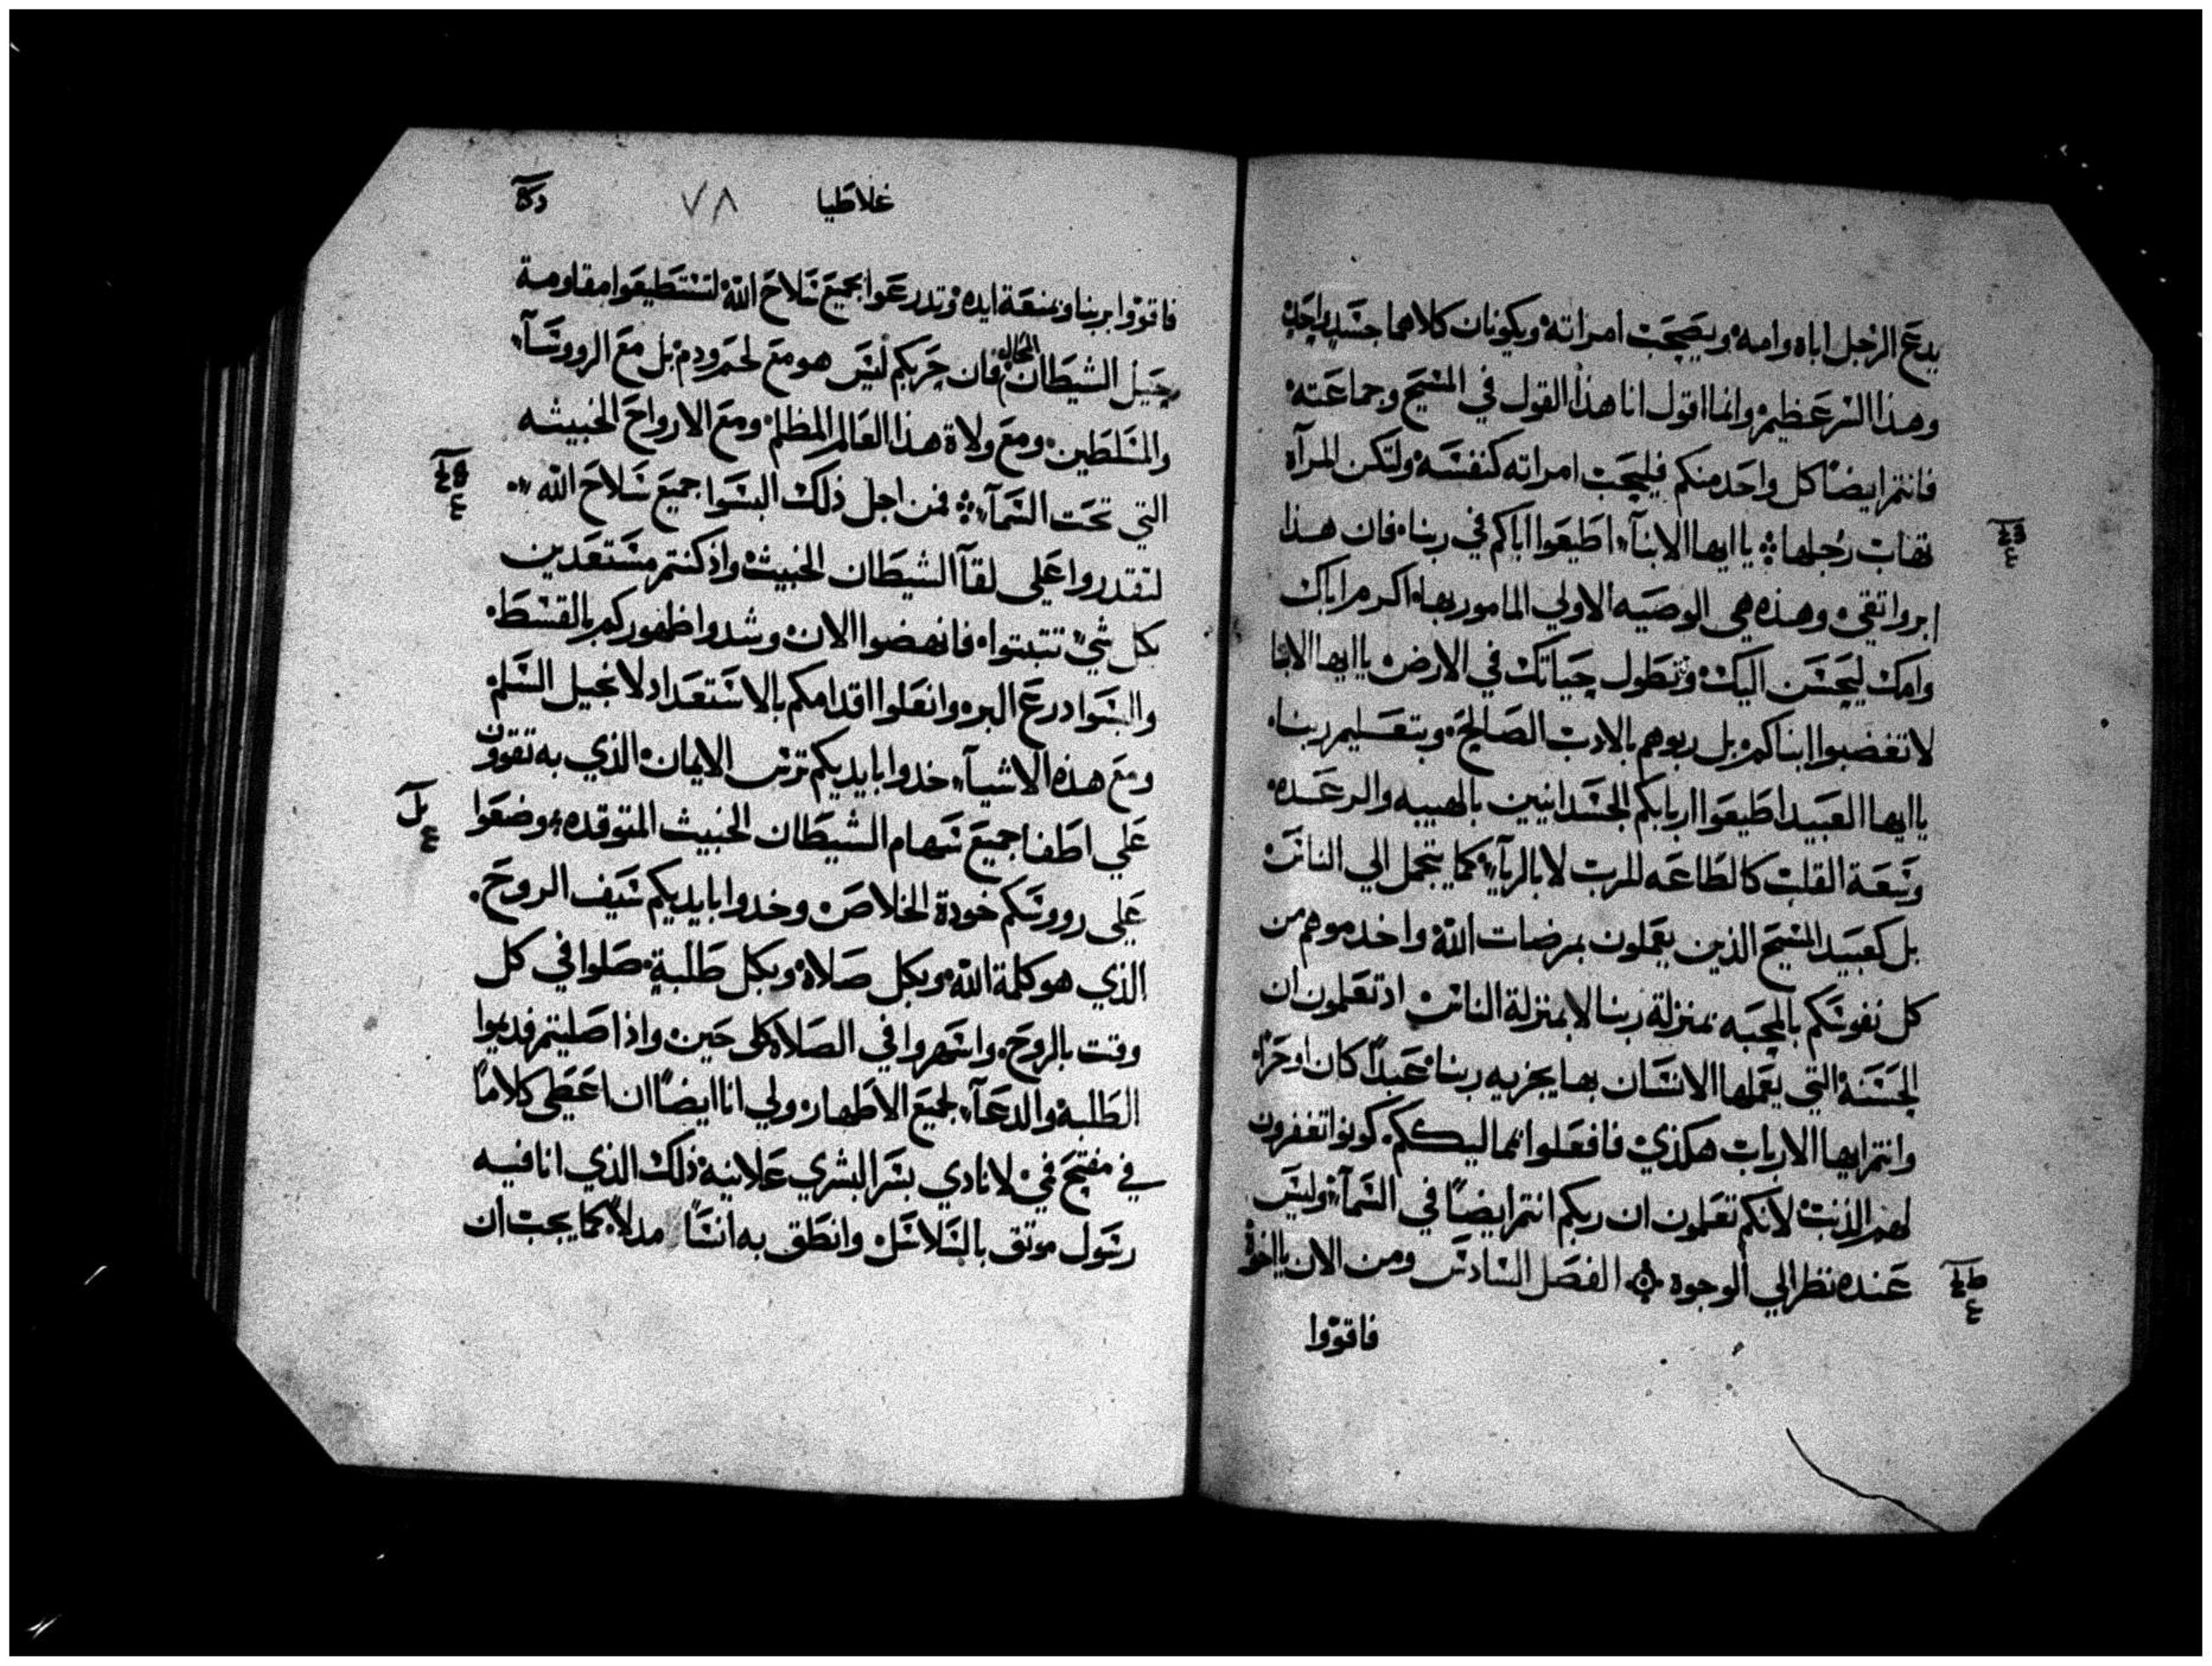 يدع الرجل اباه وامه ويصحب امراته ويكونان كلاهما جسد واحد
وهذا السر عظيم وانما اقول انا هذا القول في المسيح وجماعته
فانتم ايضًا كل واحد منكم فليحب امراته كنفسه ولتكن المرآه
تهاب رجلها ياايها الابنآ اطيعوا اباكم في ربنا فان هذا
ابروا تقي وهذه هي الوصيه الاولي المامور بها اكرم اباك
وامك ليحسن اليك وتطول حياتك في الارض ياايها الابا
لا تغضبوا ابناكم بل ربوهم بالادب الصالح وبتعليم ربنا
ياايها العبيد اطيعوا اربابكم الجسدانيين بالهيبه والرعده
وسعة القلب كالطاعه للرب لا بالرياء كما يتجمل الي الناس
بل كعبيد المسيح الذين يعملون بمرضات الله واخدموهم من
كل نفوسكم بالمحبه بمنزلة ربنا لا بمنزلة الناس اد تعلمون ان
الحسنة التي يعملها الانسان بها يجزيه ربنا عبدًا كان او حرًا
وانتم ايها الارباب هكذي فافعلوا بمماليككم كونوا تغفرون
لهم الذنب لانكم تعلمون ان ربكم انتم ايضًا في السمآ وليس
عنده نظر الي الوجوه الفصل السادس ومن الان يااخوة
فاقووا
غلاطيا
٧٨
فاقووا بربنا وبمنعة ايده وتدرعوا بجميع سلاح الله لتستطيعوا مقاومة
حيل الشيطان المحال فان حربكم ليس هو مع لحم ودم بل مع الروسآ
والمسلطين ومع ولاة هذا العالم المظلم ومع الارواح الخبيثه
التي تحت السمآ فمن اجل ذلك البسوا جميع سلاح الله
لتقدروا علي لقآ الشيطان الخبيث واذ كنتم مستعدين
بكل شي تتبتوا فانهضوا الان وشدوا ظهوركم بالقسط
والبسوا درع البر وانعلوا اقدامكم بالاستعداد لانجيل السلم
ومع هذه الاشيآ خدوا بايديكم ترس الايمان الذي به تقوون
علي اطفا جميع سهام الشيطان الخبيث المتوقده وضعوا
علي رووسكم خودة الخلاص وخدوا بايديكم سيف الروح
الذي هو كلمة الله وبكل صلاة وبكل طلبة صلوا في كل
وقت بالروح واسهروا في الصلاه كل حين واذا صليتم فديموا
الطلبة والدعآ لجميع الاطهار ولي انا ايضًا ان اعطي كلامًا
في مفتح في لانادي بسر البشري علانية ذلك الذي انا فيه
رسول موتق بالسلاسل وانطق به انسًا مدلاً كما يجب ان